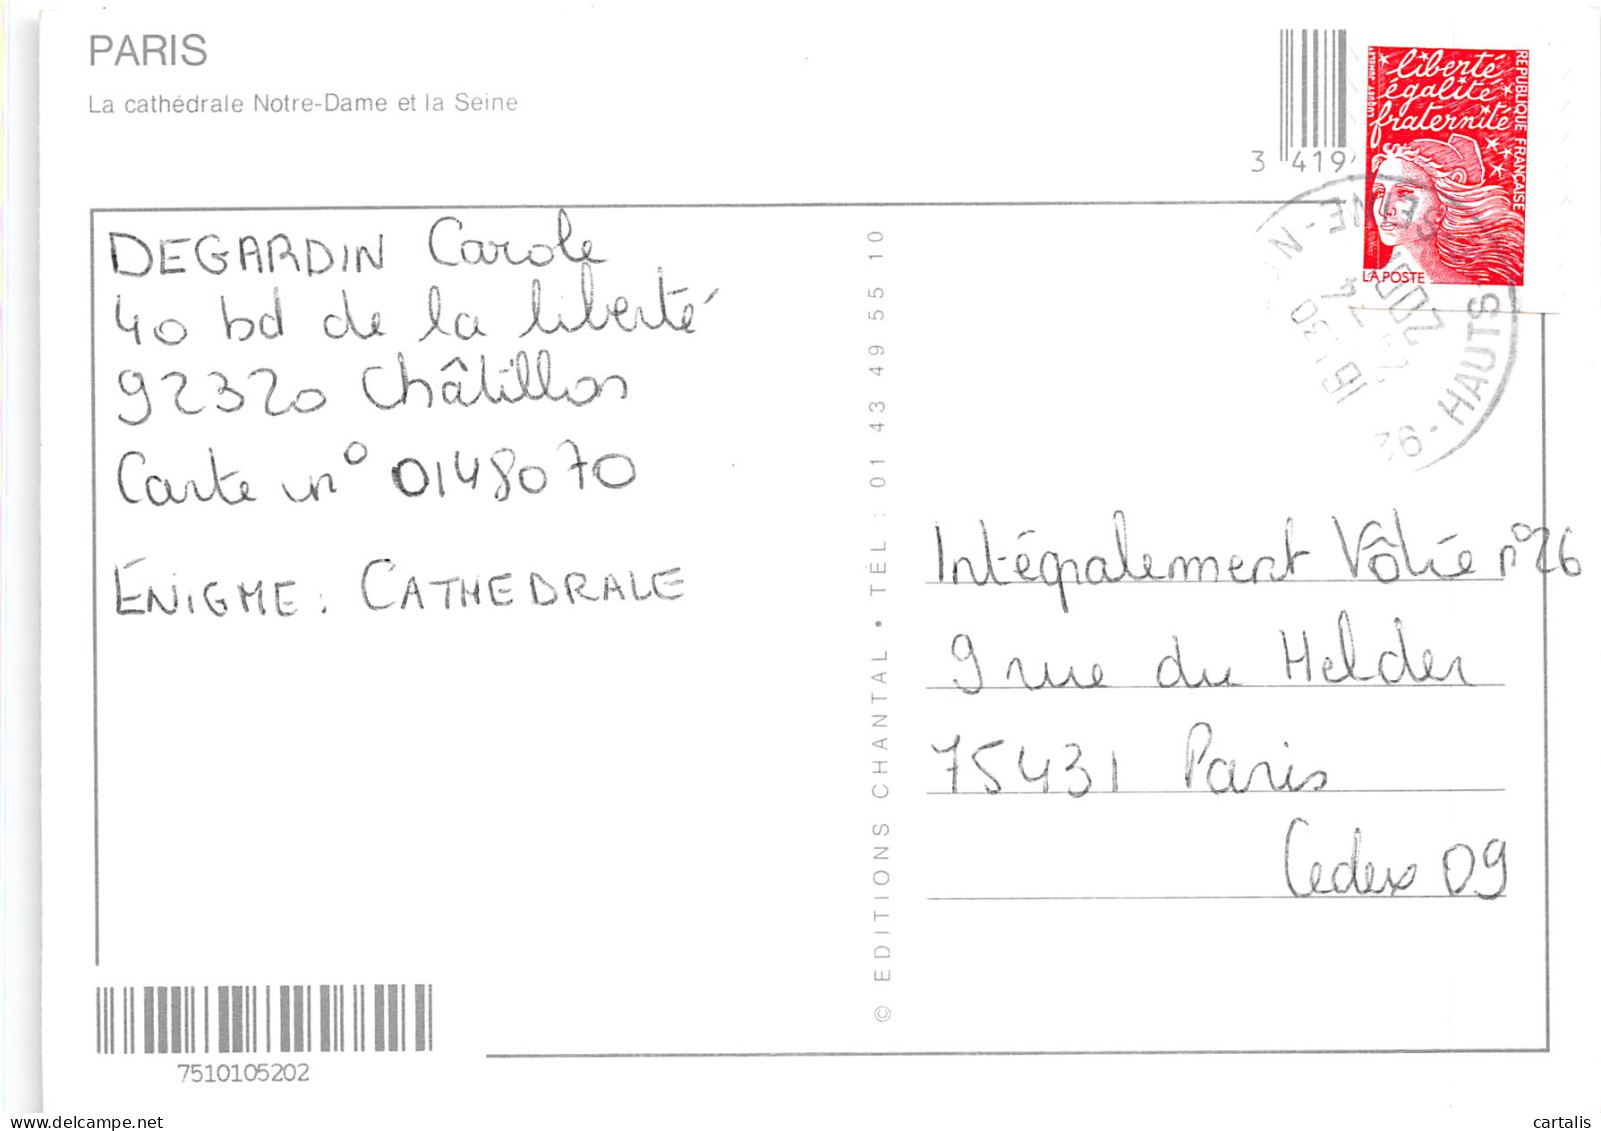 PARIS
La cathédrale Notre-Dame et la Seine
3 419
liberté
égalité
fraternité
REPUBLIQUE FRANÇAISE
LA POSTE
DEGARDIN Carole
40 bd de la liberté
92320 Châtillon
Carte n° 0148070
ENIGME : CATHEDRALE
© EDITIONS CHANTAL • TÉL : 01 43 49 55 10
16 H 30
HAUTS
SEINE
Intégralement Vôtre n°26
9 rue du Helder
75431 Paris
Cedex 09
7510105202
cpararama.com
cartalis